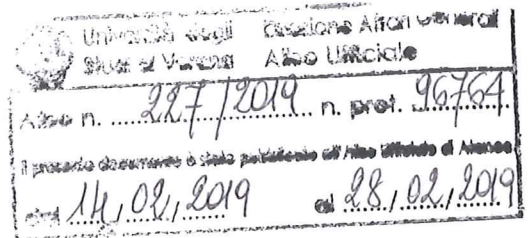 Università degli Direzione Affari Generali
Studi di Verona Albo Ufficiale
Albo n. 227/2019 n. prot. 96764
Il presente documento è stato pubblicato all'Albo Ufficiale di Ateneo
dal 14,02,2019 al 28,02,2019